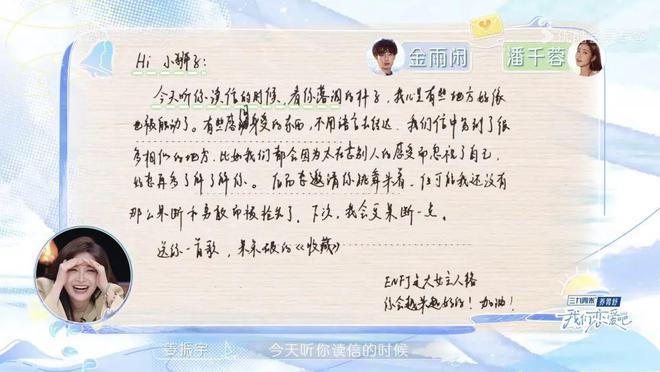 金雨闲
潘千蓉
Hi 小狮子:
今天听你读信的时候,看你落泪的样子,我心里有些地方好像
也被触动了。有些感同身受的东西,不用语言去经达,我们信中写到了很
多相似的地方,比如我们都会因为太在意别人的感受而忽视了自己,
好想再多了解了解你。后面想邀请你跳舞来着,但可能我还没有
那么果断和勇敢而被抢先了。下次,我会更果断一点。
送你一首歌,果味VC的《收藏》
ENFJ是大女主人格
你会越来越好的!加油!
三九胃泰 养胃舒
我们恋爱吧
姜振宇
今天听你读信的时候